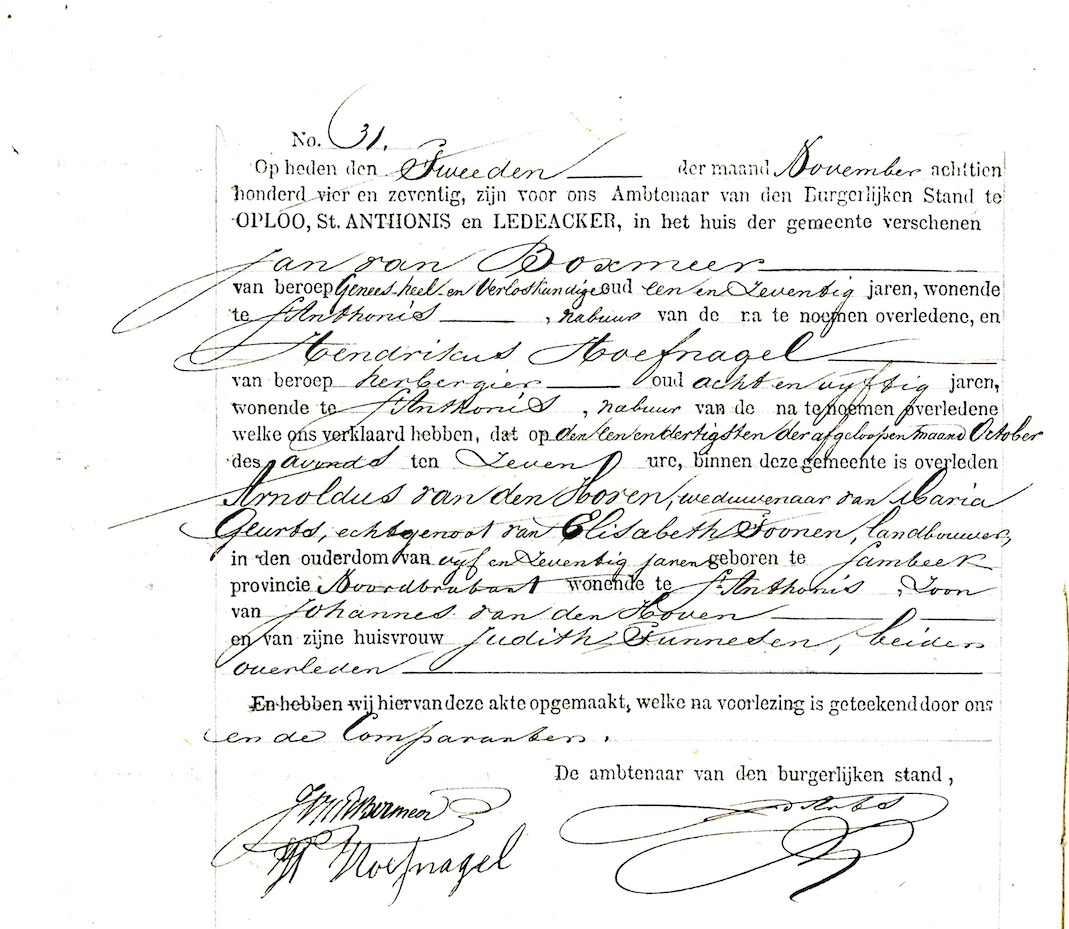 No. 31.
Op heden den Tweeden der maand November achttien
honderd vier en zeventig, zijn voor ons Ambtenaar van den Burgerlijken Stand te
OPLOO, St. ANTHONIS en LEDEACKER, in het huis der gemeente verschenen
Jan van Boxmeer
van beroep Genees-heel-en Verloskundige oud een en Zeventig jaren, wonende
te St Anthonis, nabuur van de na te noemen overledene, en
Hendrikus Hoefnagel
van beroep herbergier oud acht en vijftig jaren,
wonende te St Anthonis, nabuur van de na te noemen overledene
welke ons verklaard hebben, dat op den een en dertigsten der afgeloopen maand October
des avonds ten Zeven ure, binnen deze gemeente is overleden
Arnoldus van den Hoven, weduwenaar van Maria
Geurts, echtgenoot van Elisabeth Toonen, landbouwer,
in den ouderdom van vijf en Zeventig jaren geboren te Sambeek
provincie Noordbrabant wonende te St Anthonis, Zoon
van Johannes van den Hoven
en van zijne huisvrouw Judith Tunnesen, beiden
overleden
En hebben wij hiervan deze akte opgemaakt, welke na voorlezing is geteekend door ons
en de Comparanten.
De ambtenaar van den burgerlijken stand,
Hoefnagel